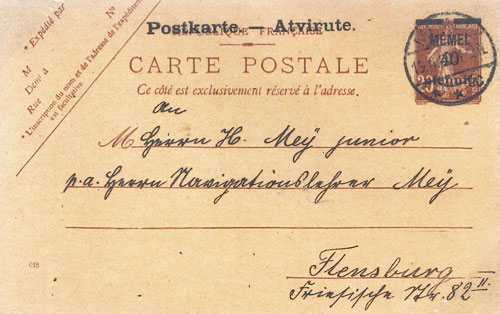 * Expédié par
No
M
Demt à
Rue
* L'inscription du nom et de l'adresse de l'expéditeur
est facultative
Postkarte. — Atvirute.
RÉPUBLIQUE FRANÇAISE
CARTE POSTALE
Ce côté est exclusivement réservé à l'adresse.
MEMEL
40
Pfennig
An
M Herrn H. Meÿ junior
p.a. Herrn Navigationslehrer Meÿ
Flensburg
Friesische Str. 82 II.